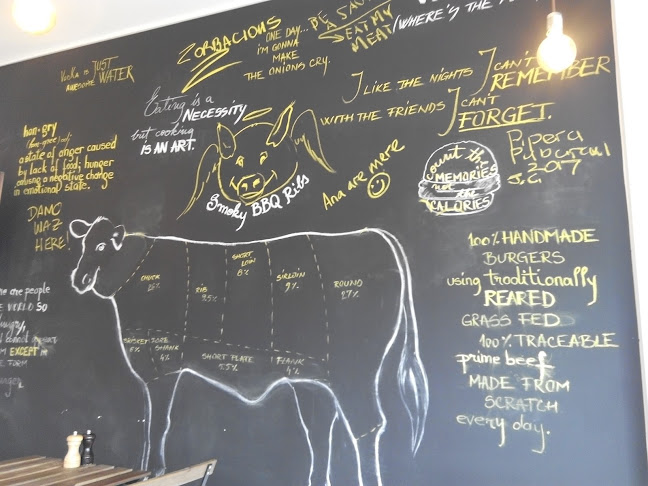 Vodka is JUST
awesome WATER
ZORBACIOUS
ONE DAY...
I'm GONNA
MAKE
THE ONIONS CRY.
EAT MY
MEAT
/WHERE'S THE
I LIKE THE NIGHTS I CAN'T
REMEMBER
WITH THE FRIENDS I CAN'T
FORGET.
Eating is a
NECESSITY
but cooking
IS AN ART.
han·gry
a state of anger caused
by lack of food; hunger
causing a negative change
in emotional state.
DAMO
WAZ
HERE!
Smoky BBQ Ribs
Ana are mere
count the
MEMORIES
not the
CALORIES
Pipera
2017
CHUCK
RIB
9.5%
SHORT
LOIN
8%
SIRLOIN
9%
ROUND
27%
BRISKET
FORE
SHANK
4%
SHORT PLATE
5.5%
FLANK
4%
100% HANDMADE
BURGERS
using traditionally
REARED
GRASS FED
100% TRACEABLE
prime beef
MADE FROM
SCRATCH
every day.
re are people
WORLD SO
hungry,
EXCEPT in
FORM